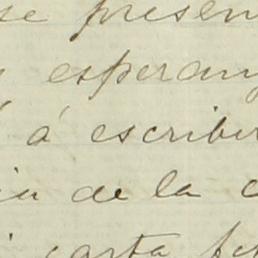 se presen
esperan
á escribir
de la c
carta